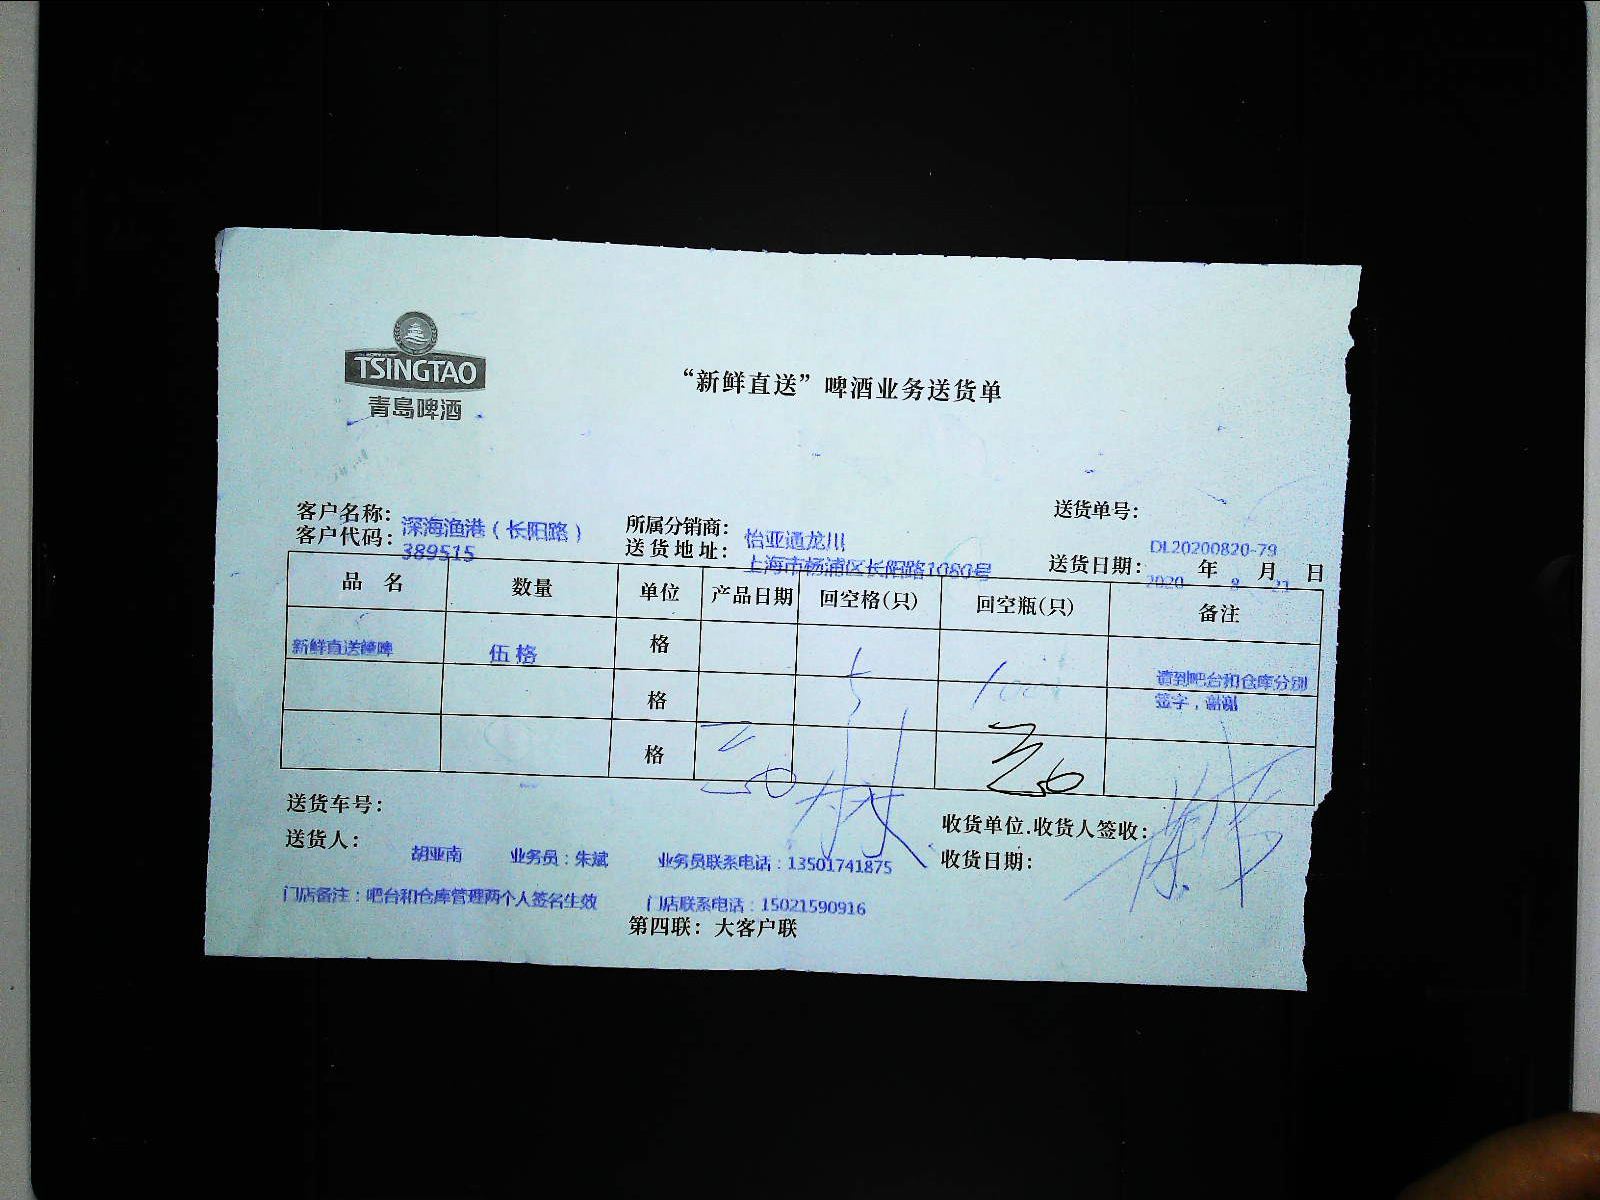 TSINGTAO
青岛啤酒
“新鲜直送”啤酒业务送货单
送货单号：
DL20200820-79
客户名称：深海渔港（长阳路） 所属分销商：怡亚通龙川
客户代码：389515 送货地址：上海市杨浦区长阳路1080号 送货日期：2020 年 8 月 21 日
品 名 数量 单位 产品日期 回空格(只) 回空瓶(只) 备注
新鲜直送 伍格 格 5 请到吧台和仓库分别
格 签字，谢谢
格
送货车号：
收货单位.收货人签收：
送货人：胡亚南 业务员：朱斌 业务员联系电话：13501741875 收货日期：
门店备注：吧台和仓库管理两个人签名生效 门店联系电话：15021590916
第四联：大客户联